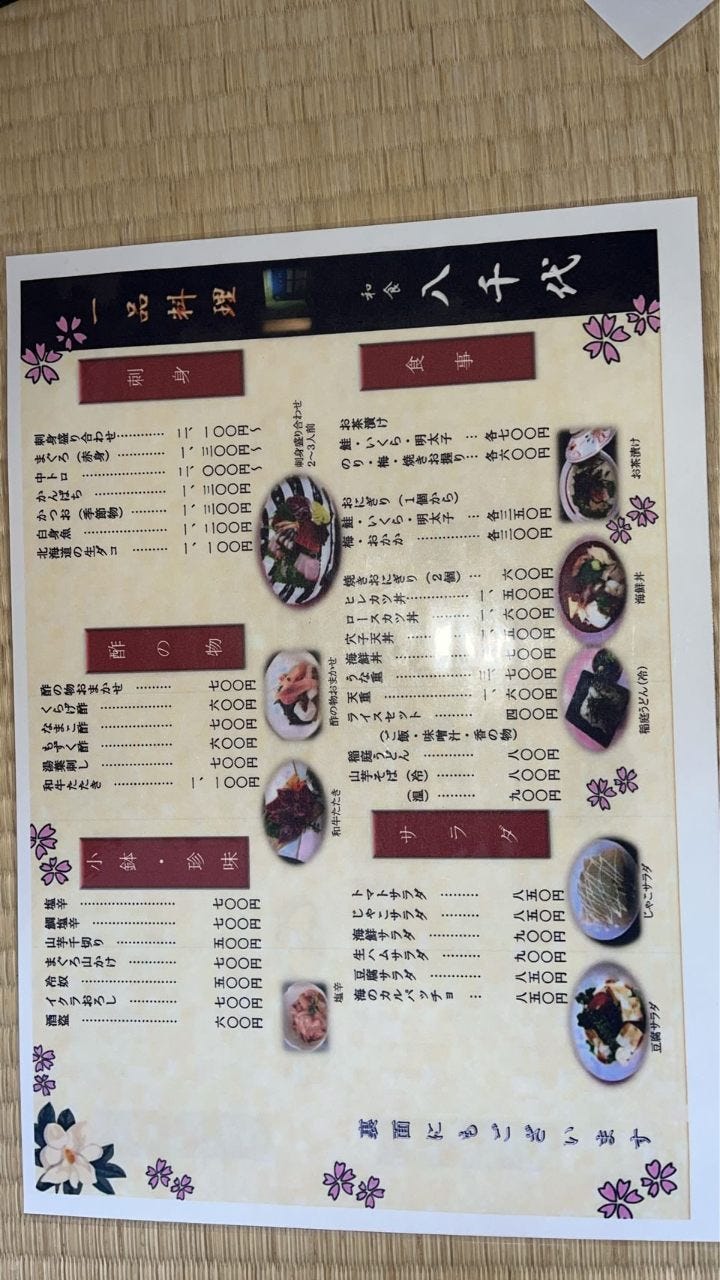 一品料理
和食 八千代
刺身
刺身盛り合わせ…………二、一〇〇円〜
まぐろ（赤身）…………一、三〇〇円〜
中トロ…………二、〇〇〇円〜
かんぱち…………一、三〇〇円
かつお（季節物）…………一、三〇〇円
白身魚…………一、二〇〇円
北海道の生ダコ…………一、一〇〇円
刺身盛り合わせ
2〜3人前
酢の物
酢の物おまかせ…………七〇〇円
くらげ酢…………六〇〇円
なまこ酢…………七〇〇円
もずく酢…………六〇〇円
湯葉刺し…………七〇〇円
和牛たたき…………一、一〇〇円
酢の物おまかせ
和牛たたき
小鉢・珍味
塩辛…………七〇〇円
鯛塩辛…………七〇〇円
山芋千切り…………五〇〇円
まぐろ山かけ…………七〇〇円
冷奴…………五〇〇円
イクラおろし…………七〇〇円
酒盗…………六〇〇円
塩辛
食事
お茶漬け
鮭・いくら・明太子…各七〇〇円
のり・梅・焼きお握り…各六〇〇円
おにぎり（１個から）
鮭・いくら・明太子…各三五〇円
梅・おかか…………各三〇〇円
焼きおにぎり（２個）…六〇〇円
ヒレカツ丼…………一、五〇〇円
ロースカツ丼…………一、六〇〇円
穴子天丼…………一、五〇〇円
海鮮丼…………七〇〇円
うな重…………三、七〇〇円
天重…………一、六〇〇円
ライスセット…………四〇〇円
（ご飯・味噌汁・香の物）
稲庭うどん…………八〇〇円
山芋そば（冷）…………八〇〇円
（温）…………九〇〇円
お茶漬け
海鮮丼
稲庭うどん（冷）
サラダ
トマトサラダ…………八五〇円
じゃこサラダ…………八五〇円
海鮮サラダ…………九〇〇円
生ハムサラダ…………九〇〇円
豆腐サラダ…………八五〇円
海のカルパッチョ…八五〇円
じゃこサラダ
豆腐サラダ
裏面にもございます